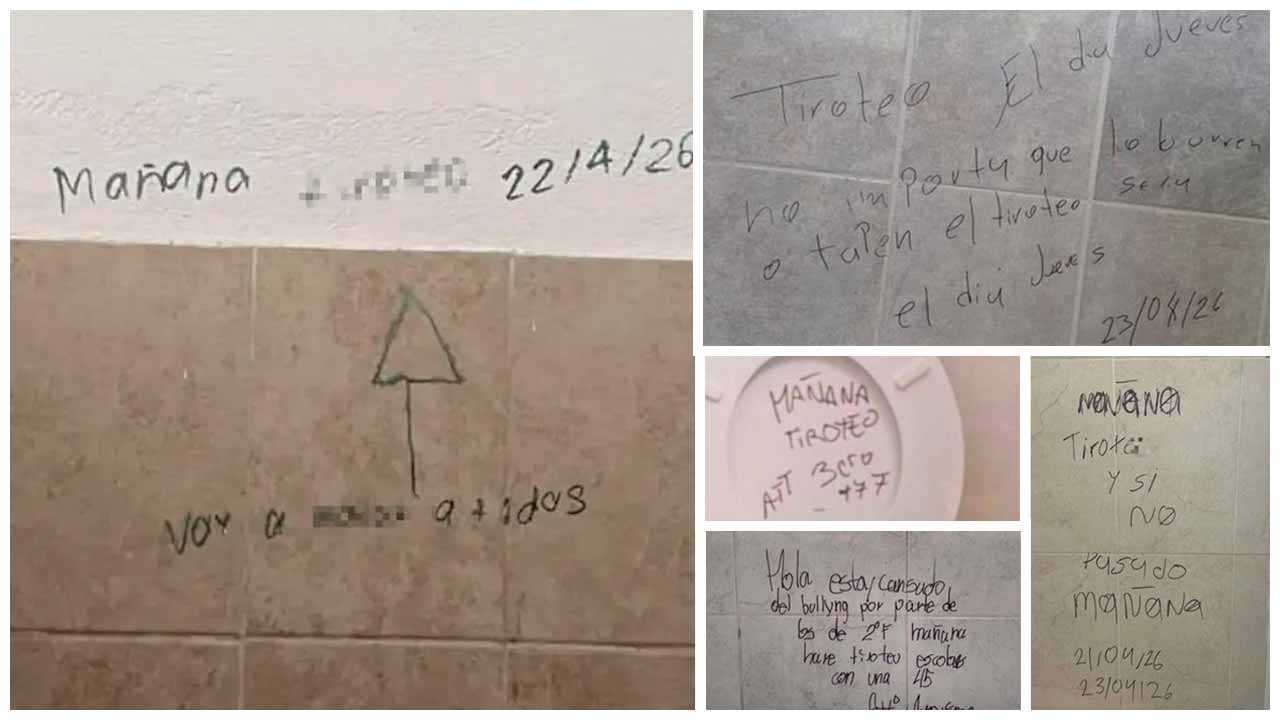 Mañana tiroteo 22/4/26
Voy a a tidos
Tiroteo El dia Jueves
no importa que lo borren
o tapen el tiroteo sera
el dia Jueves
23/04/26
MAÑANA
TIROTEO
ATT 3ero
+77
MAÑANA
Tiroteo
Y Si
NO
Pasado
MAÑANA
21/04/26
23/04/26
Hola estoy cansado
del bullyng por parte de
los de 2°F mañana
hare tiroteo escolar
con una 45